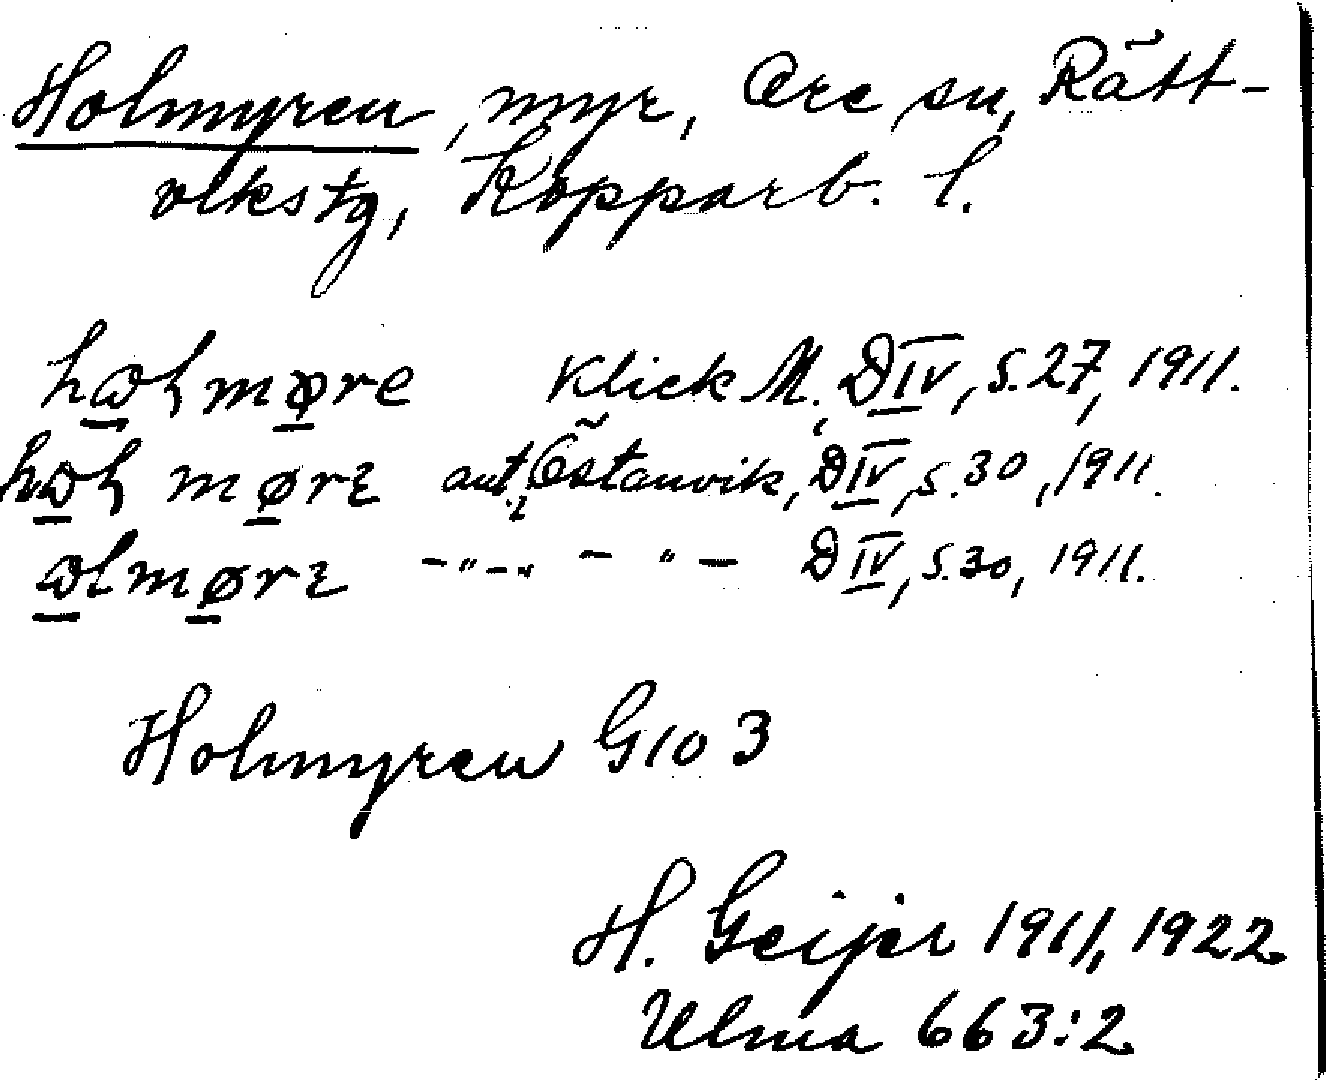 Holmyren, myr, Ore sn, Rätt-
vikstg, Kopparb. l.
hωɫmøre Klick M. D IV, s. 27, 1911.
hωɫmørɛ ant. i Östanvik, D IV, s. 30, 1911.
ωlmørɛ -"-"- -"- D IV, s. 30, 1911.
Holmyren G 10 3
H. Geijer 1911, 1922.
Ulma 663:2